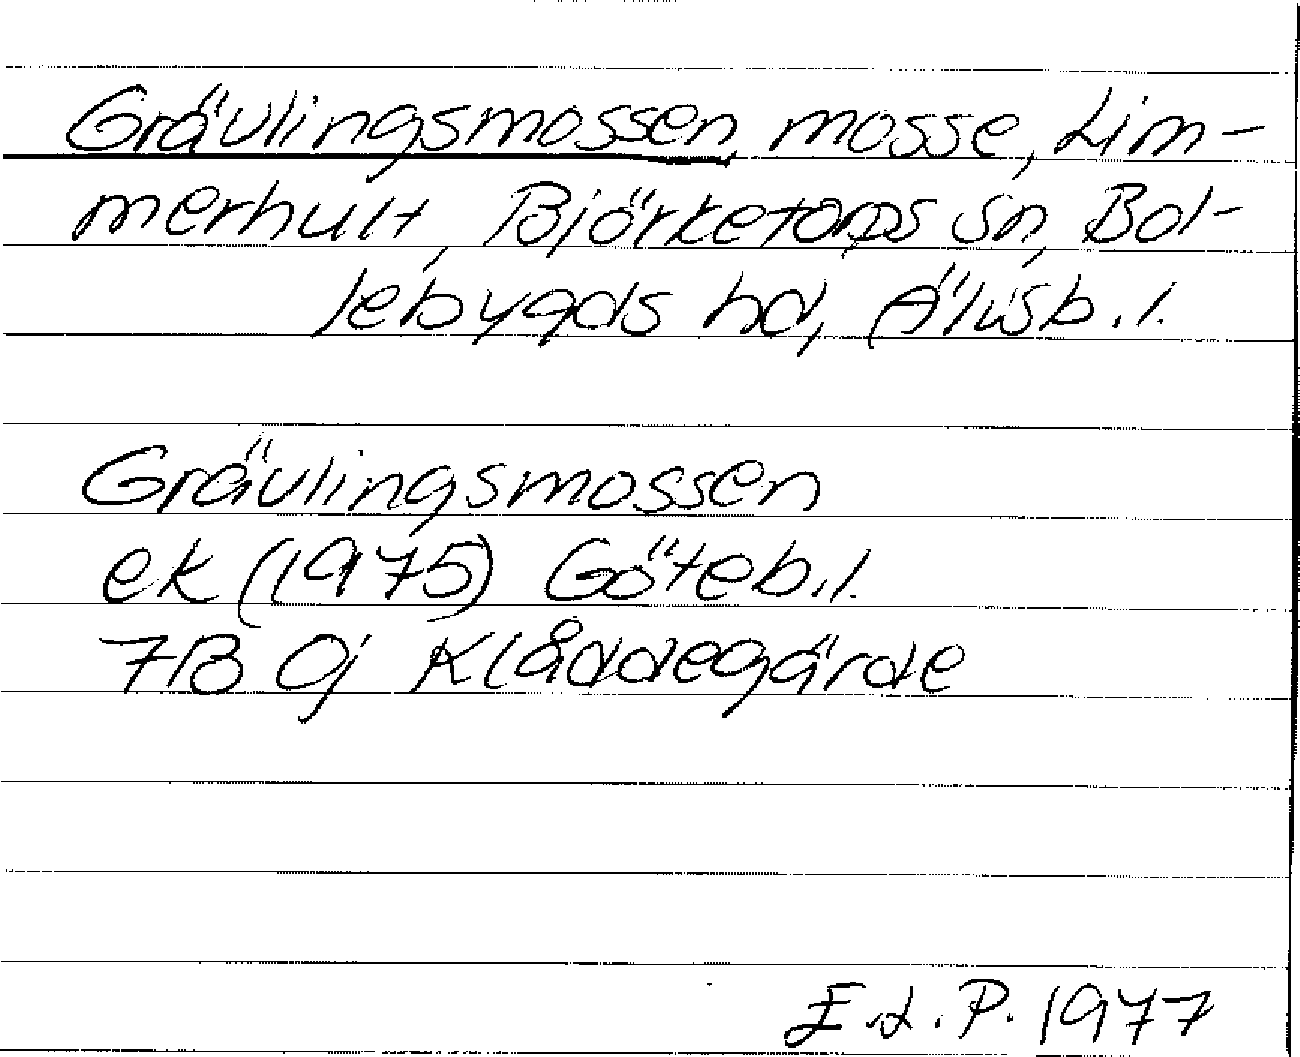 Grävlingsmossen, mosse, Lim-
merhult, Björketorps sn, Bol-
lebygds hd, Älvsb. l.
Grävlingsmossen
ek (1975) Göteb. l.
7B 0j Klåddegärde
E. L. P. 1977